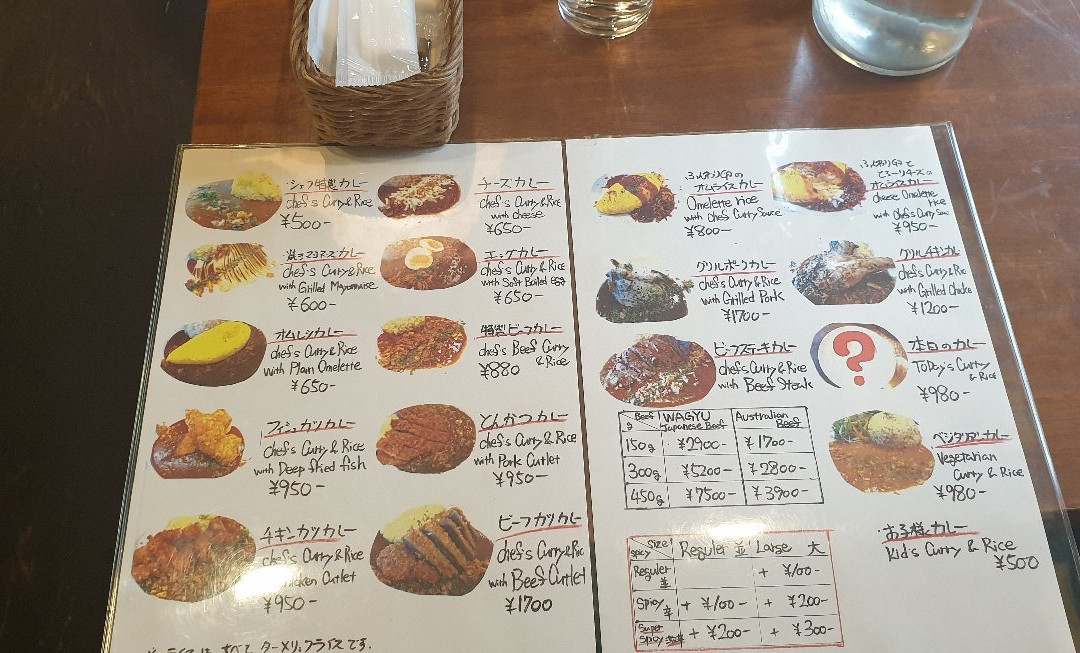 シェフ特製カレー
chef's Curry & Rice
¥500-
チーズカレー
chef's Curry & Rice
with cheese
¥650-
焼きマヨネーズカレー
chef's Curry & Rice
with Grilled Mayonnaise
¥600-
エッグカレー
chef's Curry & Rice
with Soft Boiled egg
¥650-
オムレツカレー
chef's Curry & Rice
with Plain Omelette
¥650-
特製ビーフカレー
chef's Beef Curry
& Rice
¥880
フィッシュカツカレー
chef's Curry & Rice
with Deep fried fish
¥950-
とんかつカレー
chef's Curry & Rice
with Pork Cutlet
¥950-
チキンカツカレー
chef's Curry & Rice
Chicken Cutlet
¥950-
ビーフカツカレー
chef's Curry & Ric
with Beef Cutlet
¥1700
ライスは、すべて ターメリックライスです.
ふんわり卵の
オムライスカレー
Omelette rice
with chef Curry Sauce
¥800-
ふんわり卵と
とろ〜りチーズの
オムライスカレー
cheese Omelette
rice
with chef's Curry Sauce
¥950-
グリルポークカレー
chef's Curry & Rice
with Grilled Pork
¥1700-
グリルチキンカレー
chef's Curry & Ric
with Grilled Chicke
¥1200-
ビーフステーキカレー
chef's Curry & Rice
with Beef Steak
?
本日のカレー
Today's Curry
& Rice
¥980-
Beef g WAGYU Japanese Beef Australian Beef
150g ¥2900- ¥1700-
300g ¥5200- ¥2800-
450g ¥7500- ¥3900-
ベジタリアンカレー
Vegetarian
Curry & Rice
¥980-
お子様カレー
Kid's Curry & Rice
¥500
Size Spicy Reguler 並 Large 大
Reguler 並 + ¥100-
Spicy 辛 + ¥100- + ¥200-
Super Spicy + ¥200- + ¥300-